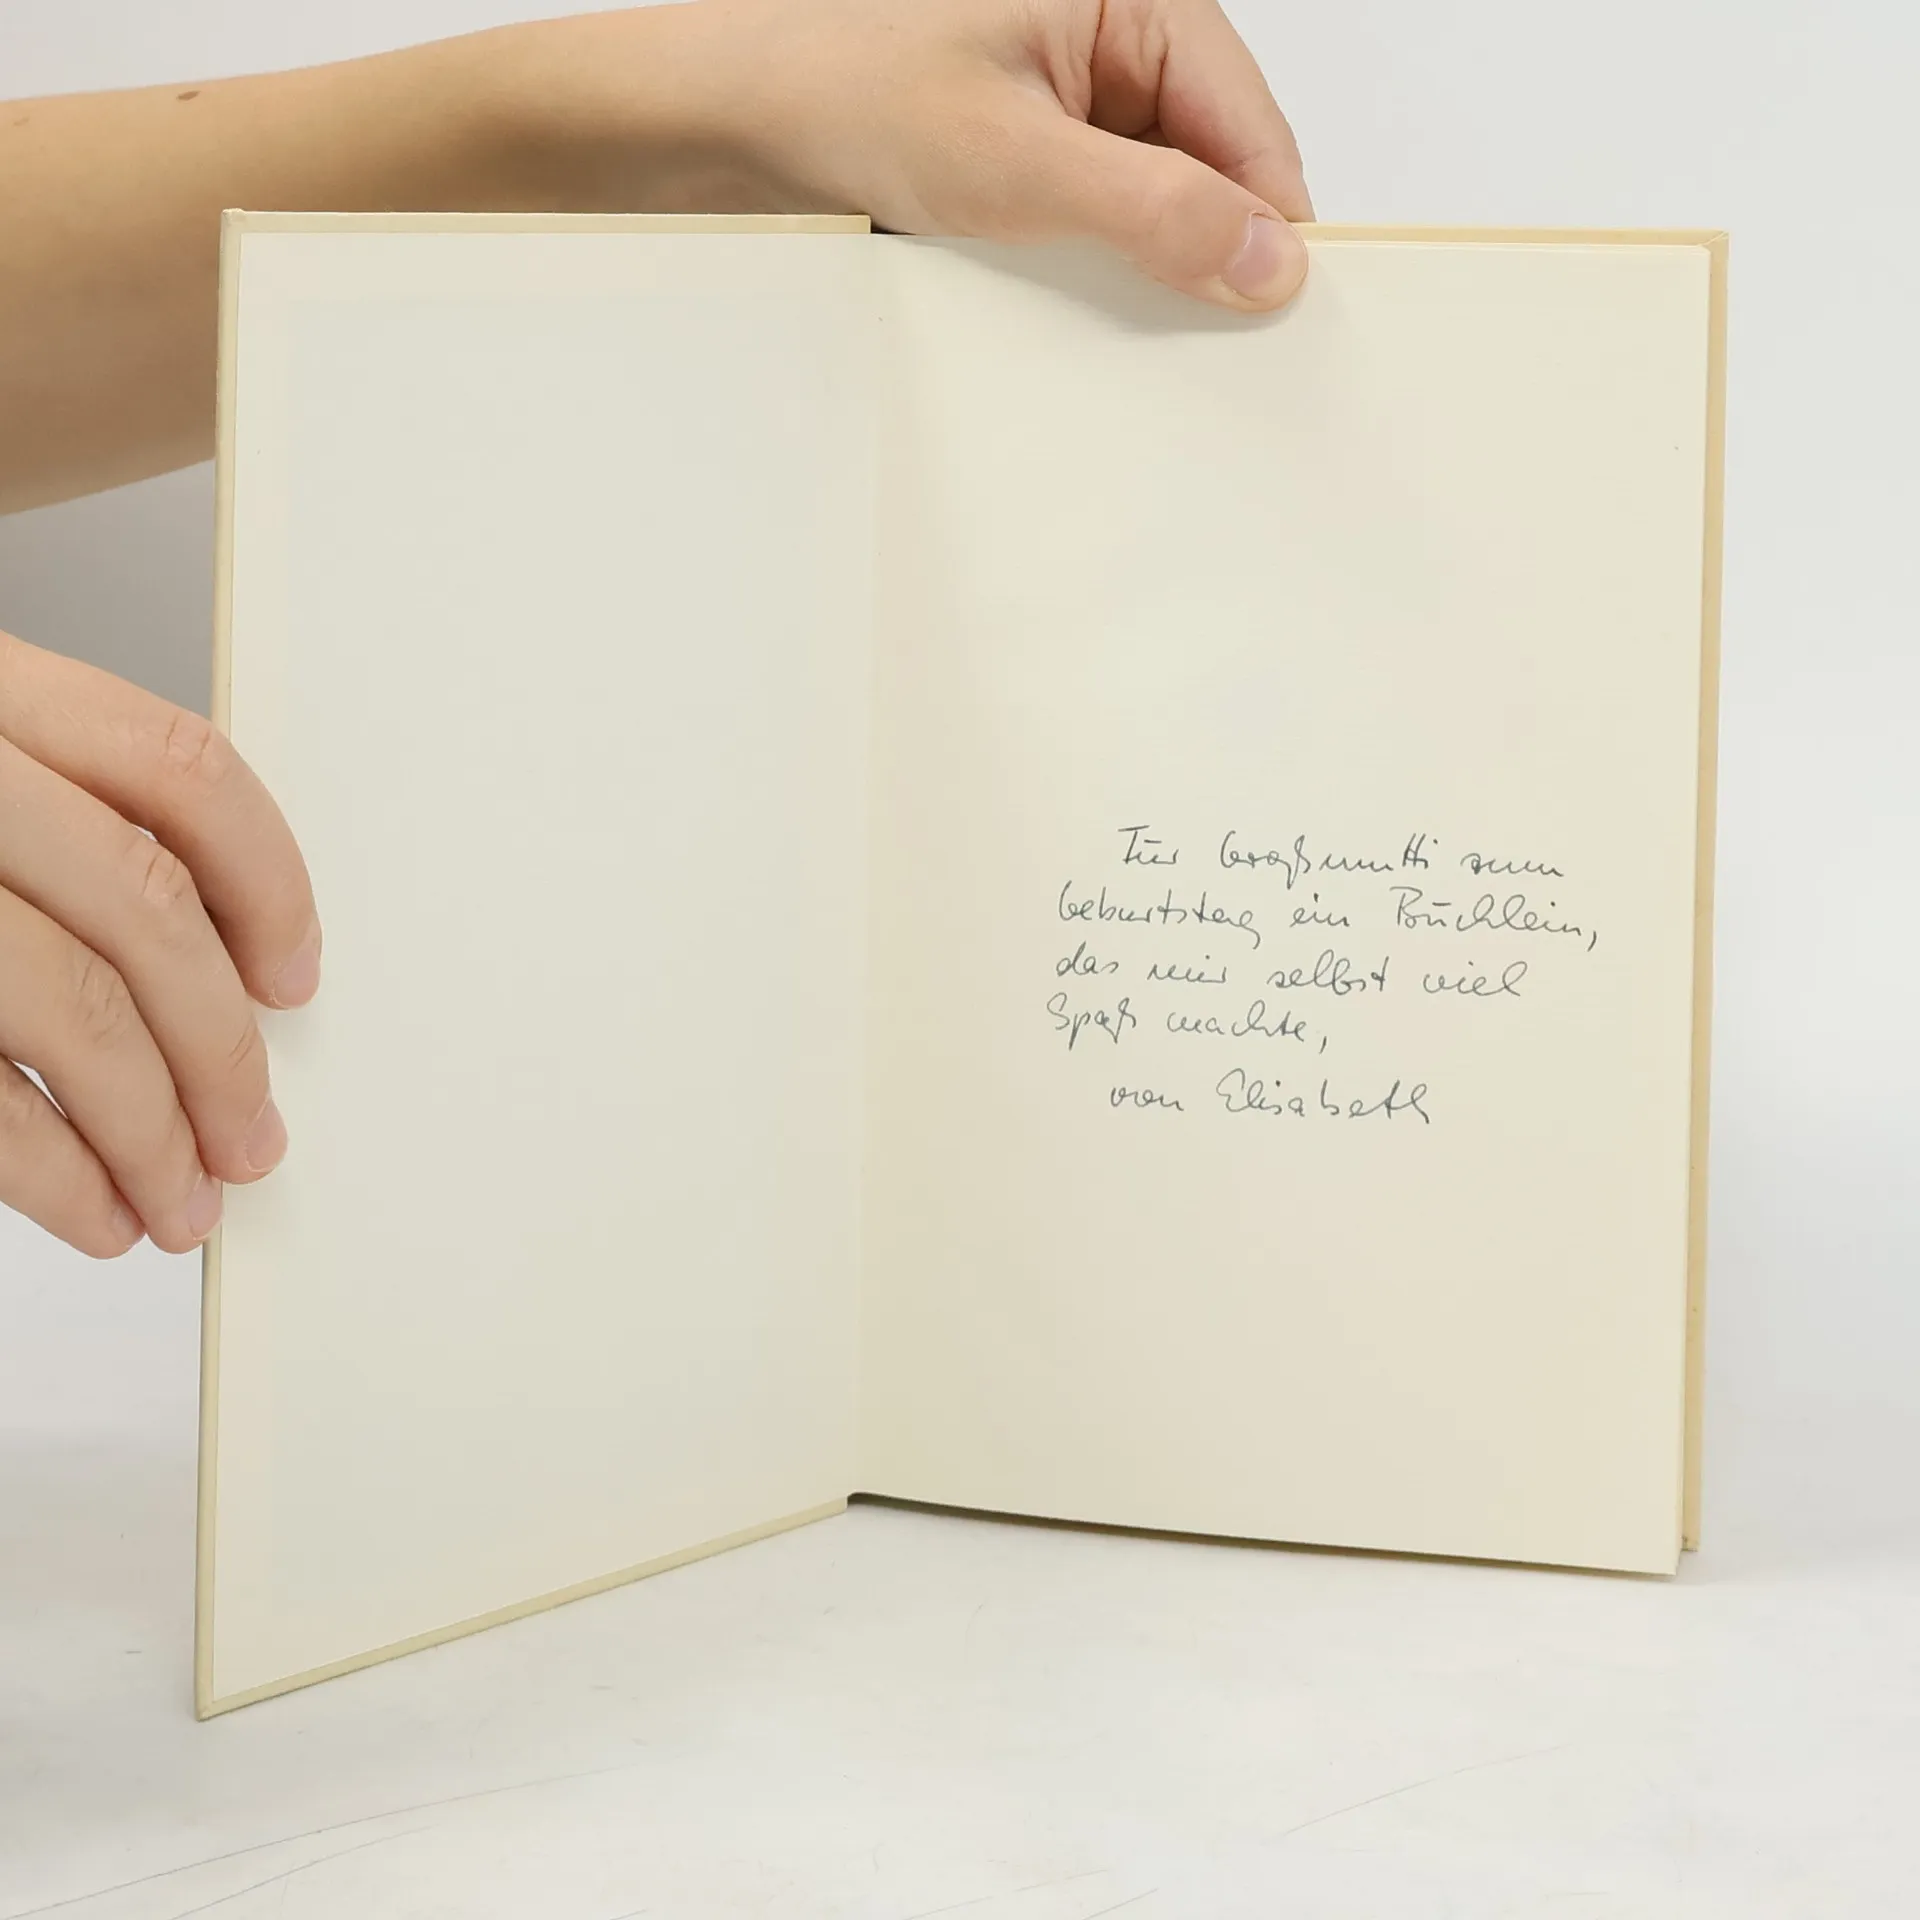 Für Großmutti zum
Geburtstag ein Büchlein,
das mir selbst viel
Spaß machte,
von Elisabeth